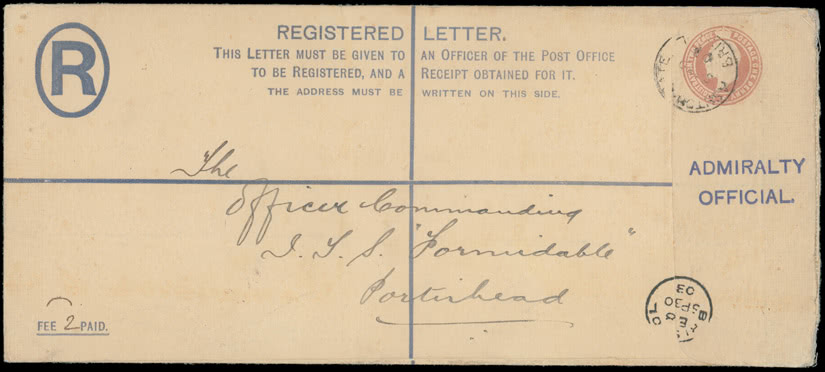 R
REGISTERED LETTER.
THIS LETTER MUST BE GIVEN TO AN OFFICER OF THE POST OFFICE
TO BE REGISTERED, AND A RECEIPT OBTAINED FOR IT.
THE ADDRESS MUST BE WRITTEN ON THIS SIDE.
ADMIRALTY
OFFICIAL.
The
Officer Commanding
I. T. S. "Formidable"
Portishead
FEE 2 PAID.
SP 30
03